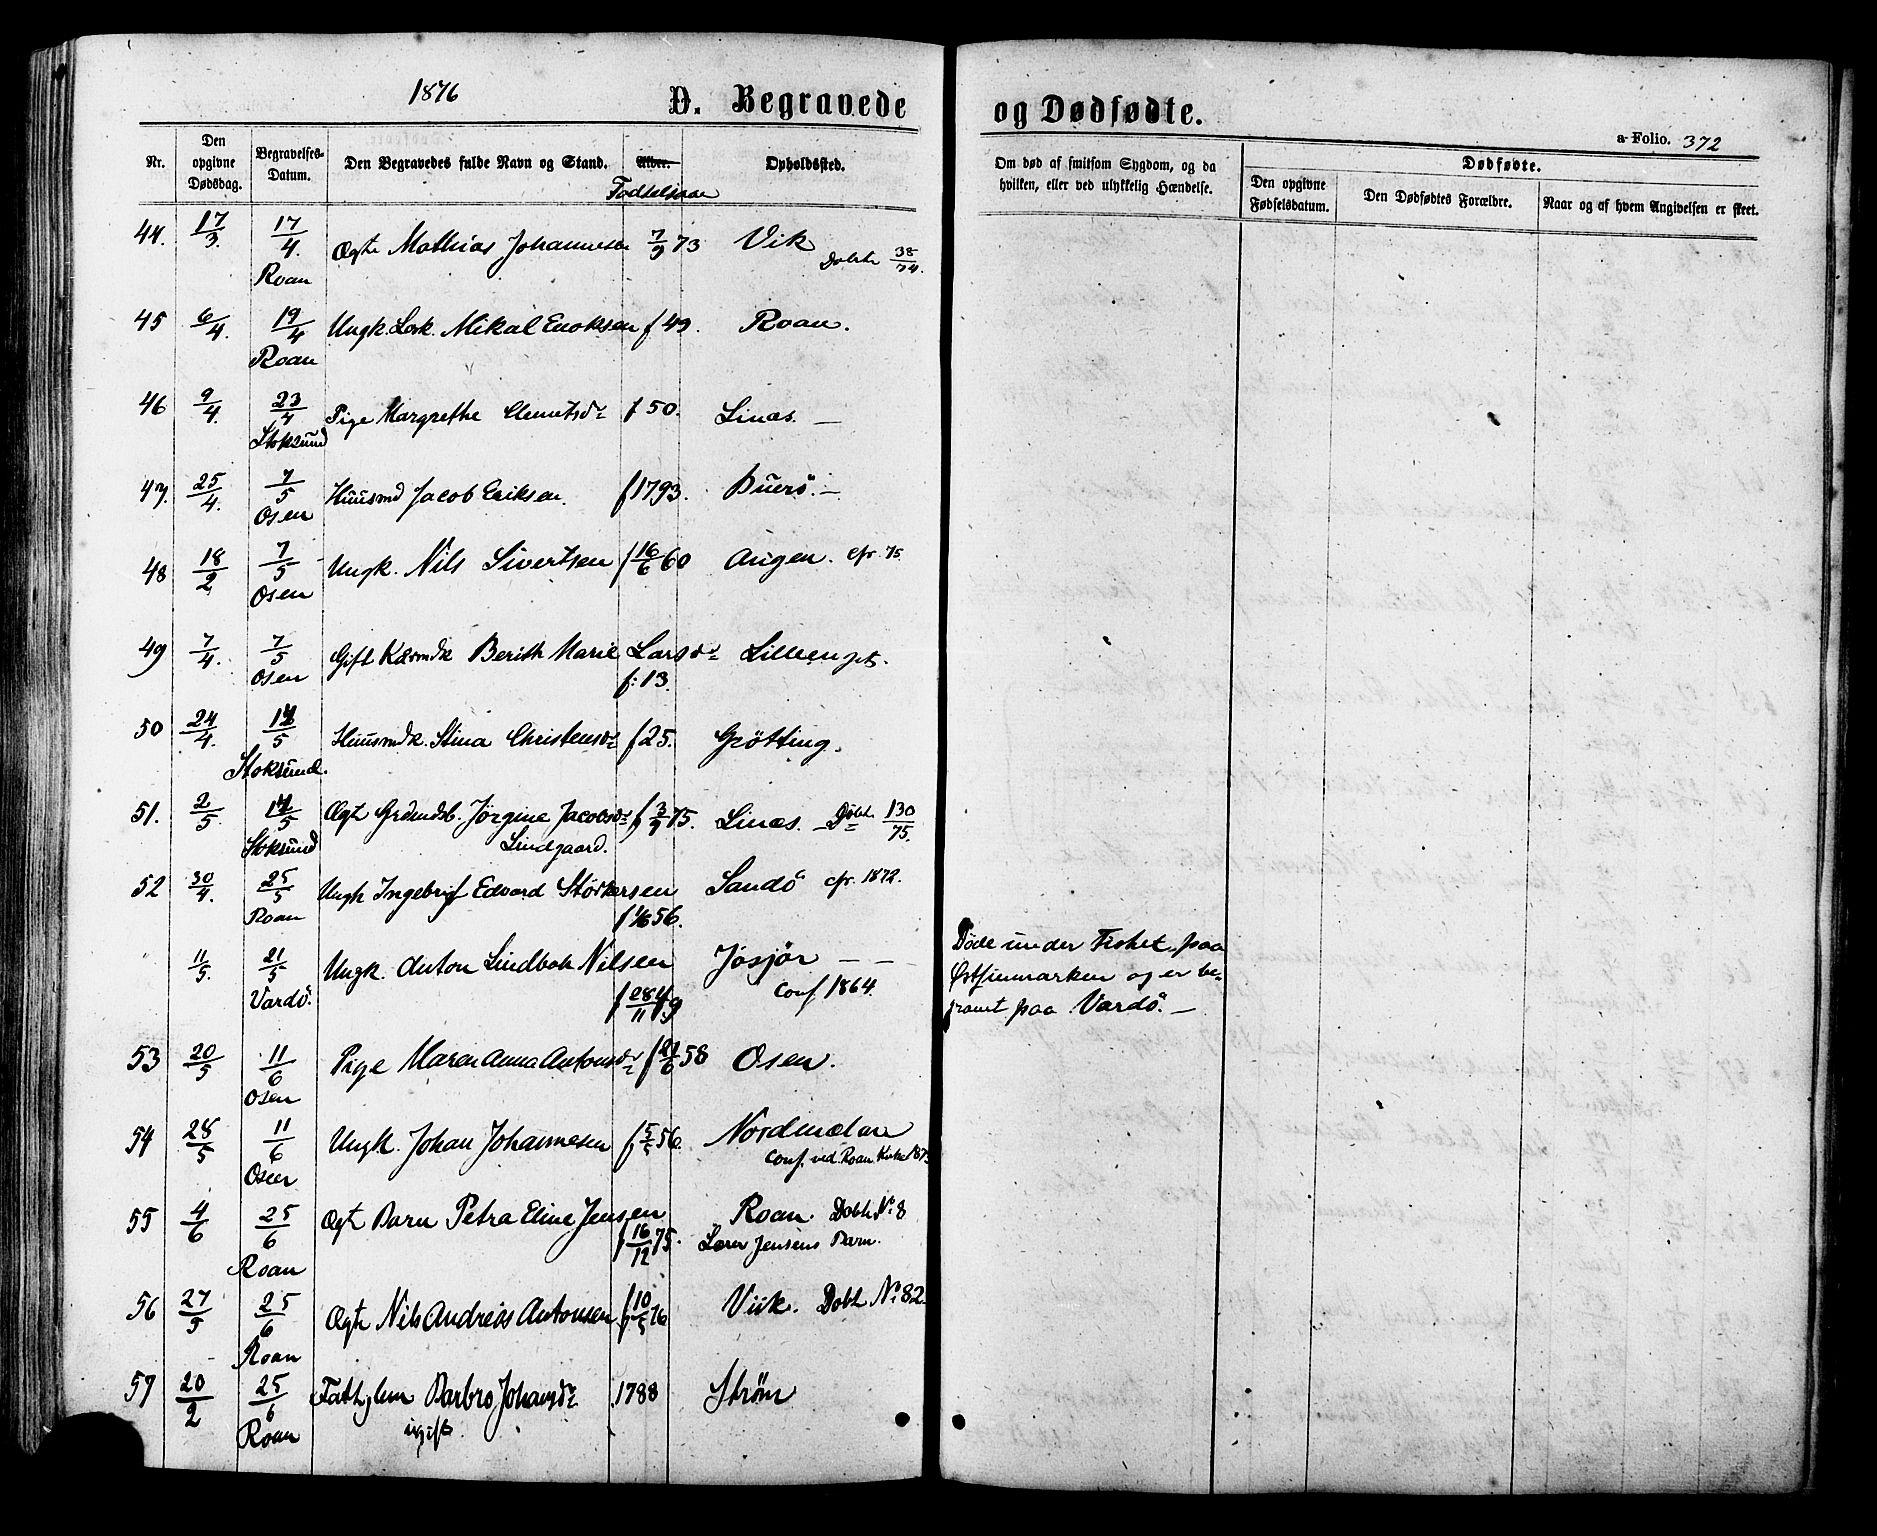 1876
D. Begravede
og Dødfødte.
a Folio. 372
Nr.
Den opgivne Dødsdag.
Begravelses-Datum.
Den Begravedes fulde Navn og Stand.
Alder.
Opholdssted.
Om død af smitsom Sygdom, og da hvilken, eller ved ulykkelig Hændelse.
Dødfødte.
Den opgivne Fødselsdatum.
Den Dødfødtes Forældre.
Naar og af hvem Angivelsen er skeet.
44. 17/3. 17/4. Ægte Mathias Johannesen 7/9 73 Vik
Roan Dobte 38/74.
45 6/4. 19/4 Ungk. Losk. Mikal Enoksen f 49. Roan.
Roan
46 9/4. 23/4 Pige Margrethe Clemetsdr f 50. Linæs. —
Stoksund
47. 25/4. 7/5 Huusmd Jacob Eriksen. f 1793. Buerö. —
Osen
48 18/2 7/5 Ungk. Nils Sivertsen f 16/6 60 Angen. cfr. 75
Osen
49 7/4. 7/5 Gift Kaarmdk Berith Marie Larsdr Lilleenget.
Osen f: 13.
50 24/4. 14/5 Huusmdk. Stina Christensdr f 25. Grötting.
Stoksund.
51. 2/5. 14/5 Ægt Grdmdsb. Jørgine Jacobsdr f 3/9 75. Linæs. Döbt. 130/75.
Stoksund Lindgaard.
52 30/4. 25/5 Ungk Ingebrigt Edvard Størkersen Sandö cfr. 1872.
Roan f 1/6 56.
11/5. 21/5 Ungk. Anton Lindbak Nilsen Jøsjør — —
Vardö. f 28/11 49 Conf 1864.
Døde under Fisket paa
Østfinmarken og er be-
gravet paa Vardö. —
53 20/5 11/6 Pige Maren Anna Antonsdr f 21/6 58 Osen.
Osen
54 28/5 11/6 Ungk. Johan Johannesen f 5/5 56. Nordmelan
Osen Conf. ved Roan Kirke
55 4/6 25/6 Ægt Barn Petra Eline Jensen Roan. Dobt No 8
Roan f 16/12 75. Lærer Jensens Barn.
56 27/5 25/6 Ægte Nils Andreas Antonsen f 10/5 76 Viik. Dobt No 82.
Roan
57 20/2 25/6 Fattiglem Barbro Johansdr 1788 Strøm
Roan ugift.